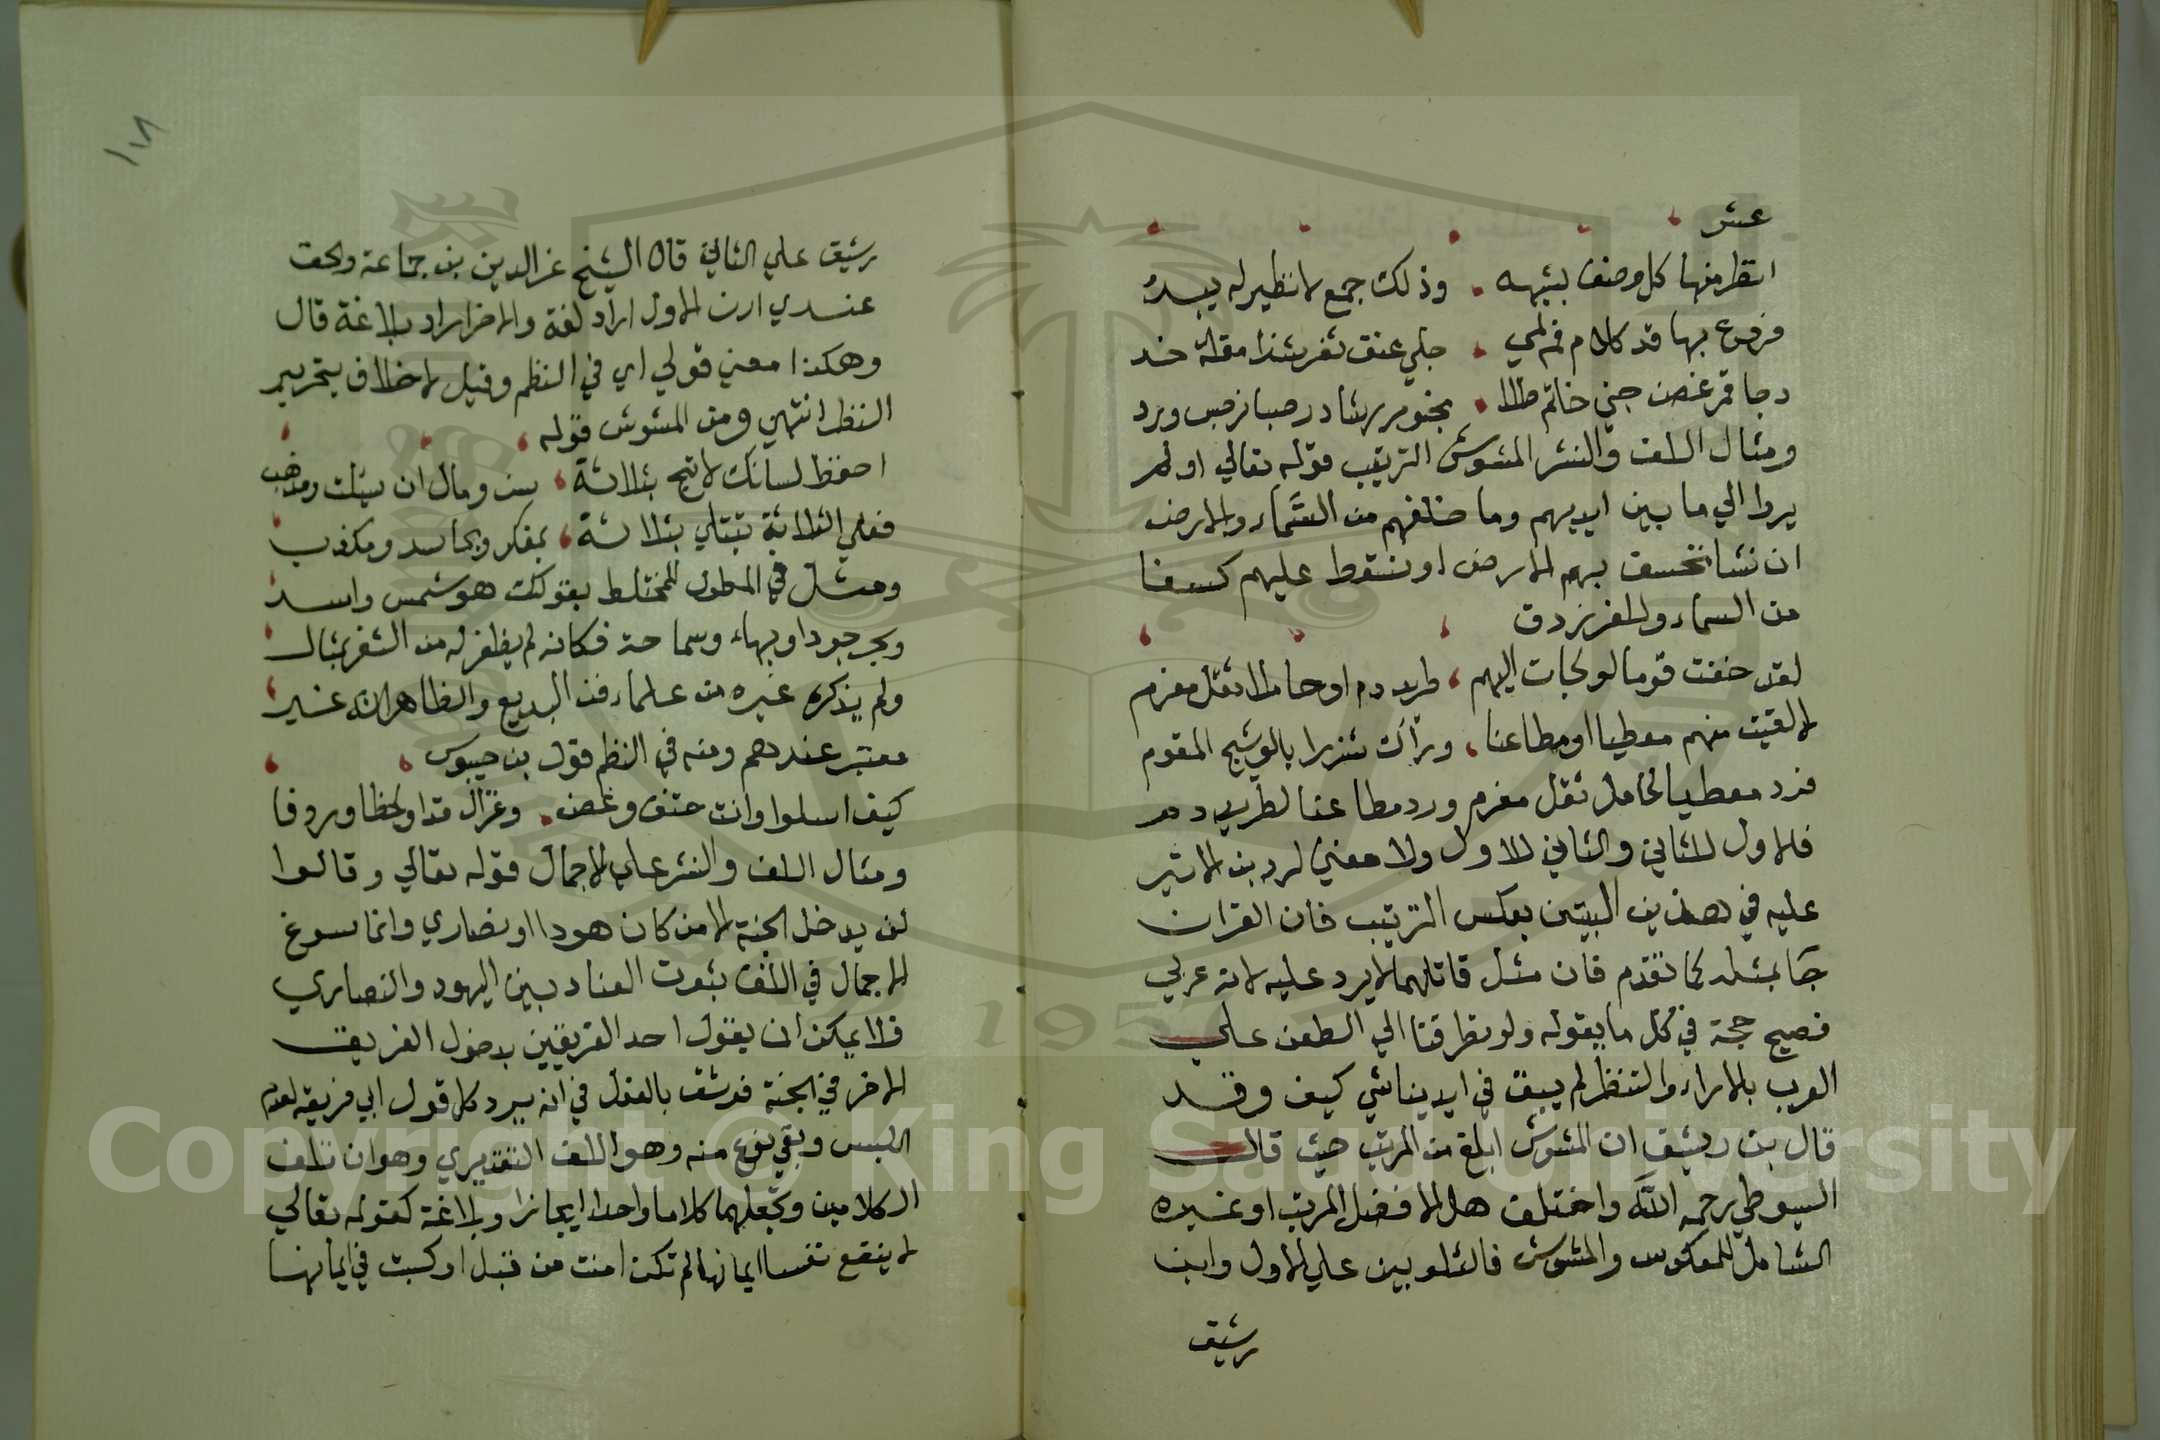 عشر
انظر منها كل وصف بشبهه وذلك جمع لا نظير له يبدُ
فروع بها قد كلام فم لمي جلي عنق ثغر شذا مقلة خد
دجا قمر غصن جني خاتم طلا نجوم رشا در صبا نرجس ورد
ومثال اللف والنشر المشوش الترتيب قوله تعالي او لم
يروا الي ما بين ايديهم وما خلفهم من السماء والارض
ان نشا نخسف بهم الارض او نسقط عليهم كسفا
من السماء وللفرزدق
لقد خفت قوما لو لجات اليهم طريد دم او حاملا ثقل مغرم
لالقيت منهم معطيا او مطاعنا وراك شزرا بالوشيج المقوم
فرد معطيا لحامل ثقل مغرم ورد مطاعنا لطريد دم
فالاول للثاني والثاني للاول ولا معني لرد بن الاثير
عليه في هذين البيتين بعكس الترتيب فان القران
جآ بمثله كما تقدم فان مثل قائلهما لا يرد عليه لانه عربي
فصيح حجة في كل ما يقوله ولو تطرقنا الي الطعن علي
العرب بالاراء والتنظر لم يبق في ايدينا شي كيف وقد
قال بن رشيق ان المشوش ابلغ من المرتب حيث قال
السيوطي رحمه الله واختلف هل الافضل المرتب او غيره
الشامل للمعكوس والمشوش فالشلوبين علي الاول وابن
رشيق
١٠٨
رشيق علي الثاني قال الشيخ عز الدين بن جماعة ويحق
عندي ان الاول اراد لغة والاخر اراد بلاغة قال
وهكذا معني قولي اي في النظم وقيل لا خلاف بتحرير
النظر انتهي ومن المشوش قوله
احفظ لسانك لا تبح بثلاثة سن ومال ان سئلت ومذهب
فعلي الثلاثة تبتلي بثلاثة بمفكر وبحاسد ومكذب
ومثل في المطول للمختلط بقولك هو شمس واسد
وبحر جودا وبهاء وسماحة فكانه لم يظفر له من الشعر بمثال
ولم يذكره غيره من علماء فن البديع والظاهر انه غير
معتبر عندهم ومنه في النظم قول بن حيوس
كيف اسلوا وانت حقف وغصن وغزال قدا ولحظا وردفا
ومثال اللف والنشر علي الاجمال قوله تعالي وقالوا
لن يدخل الجنة الا من كان هودا او نصاري وانما سوغ
الاجمال في اللف ثبوت العناد بين اليهود والنصاري
فلا يمكن ان يقول احد الفريقين بدخول الفريق
الاخر في الجنة فوثق بالعقل في انه يرد كل قول الي فريقه لعدم
اللبس وبقي نوع منه وهو اللف التقديري وهو ان تلف
الكلامين وتجعلهما كلاما واحدا ايجازا وبلاغة كقوله تعالي
لا ينفع نفسا ايمانها لم تكن امنت من قبل او كسبت في ايمانها
Copyright © King Saud University
1957